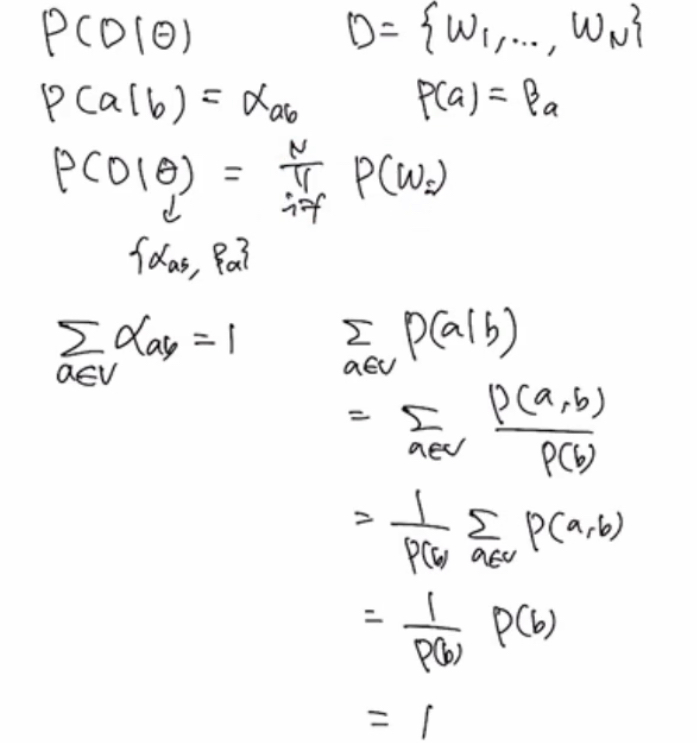 P(D|θ) D = {W₁, ..., W_N}
P(a|b) = α_ab P(a) = β_a
P(D|θ) = ∏_{i=1}^{N} P(W_i)
↓
{α_ab, β_a}
∑_{a∈V} α_ab = 1 ∑_{a∈V} P(a|b)
= ∑_{a∈V} P(a,b) / P(b)
= 1/P(b) ∑_{a∈V} P(a,b)
= 1/P(b) P(b)
= 1